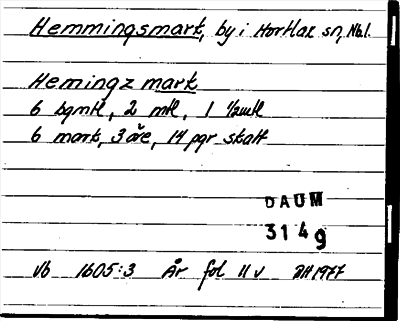 Hemmingsmark, by i Hortlax sn, Nb.l.
Hemingz mark
6 bgmtl, 2 mtl, 1 ½mtl
6 mark, 3 öre, 14 pgr skatt
DAUM
3149
Vb 1605:3 År fol 11 v 1977